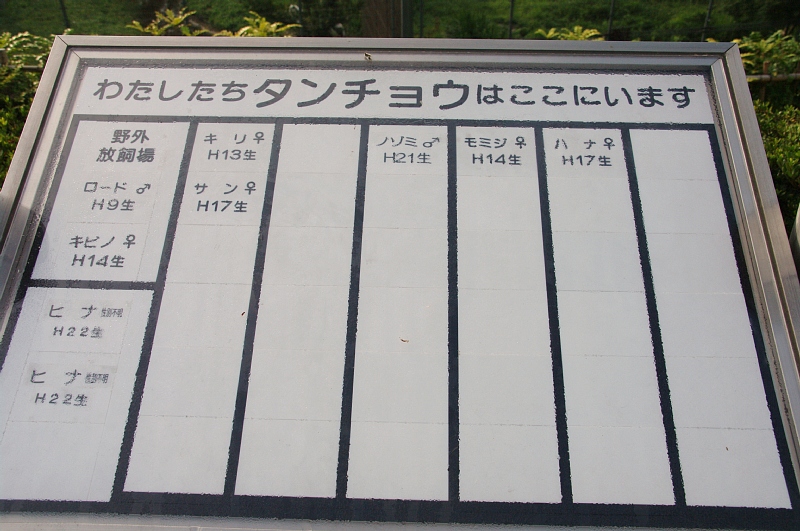 わたしたちタンチョウはここにいます
野外
放飼場
ロード♂
H9生
キビノ♀
H14生
ヒナ
H22生
ヒナ
H22生
キリ♀
H13生
サン♀
H17生
ノゾミ♂
H21生
モミジ♀
H14生
ハナ♀
H17生